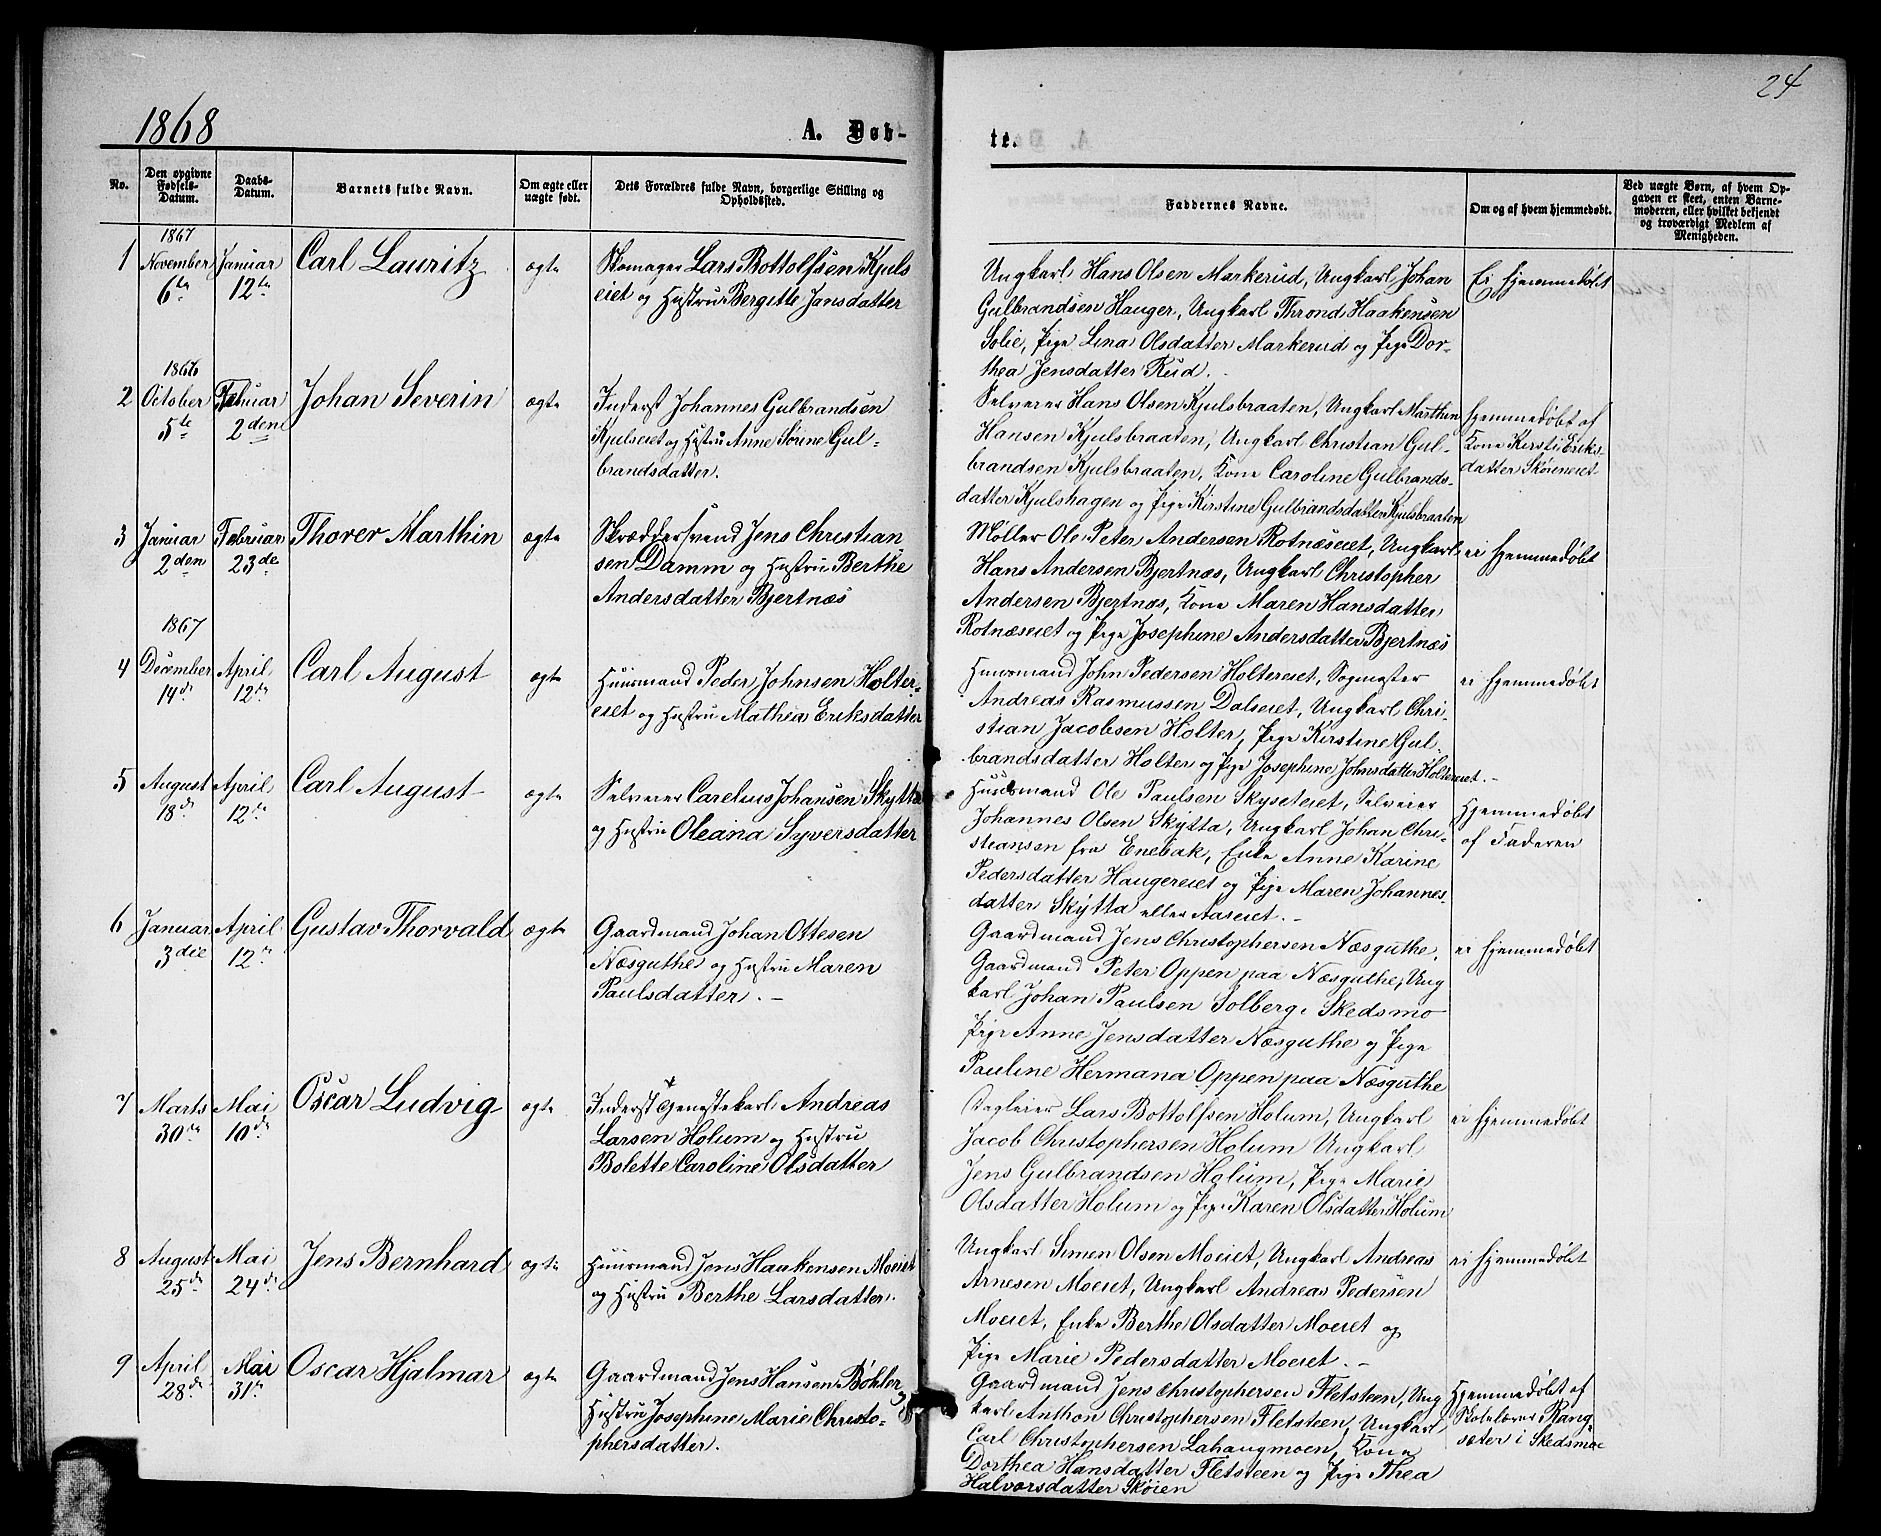 24
1868
A. Døb-
te.
No.
Den opgivne Fødsels-Datum.
Daabs-Datum.
Barnets fulde Navn.
Om ægte eller uægte født.
Dets Forældres fulde Navn, borgerlige Stilling og Opholdssted.
Faddernes Navne.
Om og af hvem hjemmedøbt.
Ved uægte Børn, af hvem Op-
gaven er skeet, enten Barne-
moderen, eller hvilket bekjendt
og troværdigt Medlem af
Menigheden.
1
1867
November
6te
Januar
12te
Carl Lauritz
ægte
Skomager Lars Bottolfsen Kjuls
eiet og Hustru Bergitte Jansdatter
Ungkarl Hans Olsen Markerud, Ungkarl Johan
Gulbrandsen Hauger, Ungkarl Thrond Haakensen
Solie, Pige Lina Olsdatter Markerud og Pige Dor-
thea Jensdatter Rud.
Ei hjemmedøbt
2
1866
October
5te
Februar
2den
Johan Severin
ægte
Inderst Johannes Gulbrandsen
Kjulseiet og Hustru Anne Sørine Gul-
brandsdatter.
Selveier Hans Olsen Kjulsbraaten, Ungkarl Marthin
Hansen Kjulsbraaten, Ungkarl Christian Gul-
brandsen Kjulsbraaten, Kone Caroline Gulbrands-
datter Kjulshagen og Pige Kirstine Gulbrandsdatter Kjulsbraaten
Hjemmedøbt af
Kone Kirsti Eriks-
datter Skøieneiet
3
Januar
2den
Februar
23de
Thorer Marthin
ægte
Skræddersvend Jens Christian
sen Damm og Hustru Berthe
Andersdatter Bjertnæs
Møller Ole Peter Andersen Rotnæseiet, Ungkarl
Hans Andersen Bjertnæs, Ungkarl Christopher
Andersen Bjertnæs, Kone Maren Hansdatter
Rotnæseiet og Pige Josephine Andersdatter Bjertnæs
ei hjemmedøbt
4
1867
December
14de
April
12te
Carl August
ægte
Huusmand Peder Johnsen Holter-
eiet og Hustru Mathea Eriksdatter
Huusmand John Pedersen Holtereiet, Sogmester
Andreas Rasmussen Dalseiet, Ungkarl Chri-
stian Jacobsen Holter, Pige Kirstine Gul-
brandsdatter Holter og Pige Josephine Johnsdatter Holtereiet.-
ei hjemmedøbt
5
August
18de
April
12te
Carl August
ægte
Selveier Carelius Johansen Skytta
og Hustru Oleana Syversdatter
Huusmand Ole Paulsen Skyseteiet, Selveier
Johannes Olsen Skytta, Ungkarl Johan Chri-
stiansen fra Enebak, Enke Anne Karine
Pedersdatter Haugereiet og Pige Maren Johannes-
datter Skytta eller Aaseiet.-
Hjemmedøbt
af Faderen
6
Januar
3die
April
12te
Gustav Thorvald
ægte
Gaardmand Johan Ottesen
Næsguthe og Hustru Maren
Paulsdatter.-
Gaardmand Jens Christophersen Næsguthe,
Gaardmand Peter Oppen paa Næsguthe, Ung
karl Johan Paulsen Solberg i Skedsmo
Pige Anne Jensdatter Næsguthe og Pige
Pauline Hermana Oppen paa Næsguthe
ei hjemmedøbt
7
Marts
30te
Mai
10de
Oscar Ludvig
ægte
Inderst + Tjenestekarl Andreas
Larsen Holum og Hustru
Bolette Caroline Olsdatter
Lars Bottolfsen Holum, Ungkarl
Jacob Christophersen Holum Ungkarl
Jens Gulbrandsen Holum, Pige Marie
Olsdatter Holum og Pige Karen Olsdatter Holum
ei hjemmedøbt
8
August
25de
Mai
24de
Jens Bernhard
ægte
Huusmand Jens Haakensen Moeiet
og Hustru Berthe Larsdatter.
Ungkarl Simen Olsen Moeiet, Ungkarl Andreas
Arnesen Moeiet, Ungkarl Andreas Pedersen
Moeiet, Enke Berthe Olsdatter Moeiet og
Pige Marie Pedersdatter Moeiet.-
ei hjemmedøbt
9
April
28de
Mai
31te
Oscar Hjalmar
ægte
Gaardmand Jens Hansen Bøhler og
Hustru Josephine Marie Christo-
phersdatter.
Gaardmand Jens Christophersen Fletsteen, Ung
karl Anthon Christophersen Fletsteen, Ungkarl
Carl Christophersen Lahaugmoen, Kone
Dorthea Hansdatter Fletsteen og Pige Thea
Halvorsdatter Skøien
Hjemmedøbt af
Skolelærer Rang-
sæter i Skedsmoe